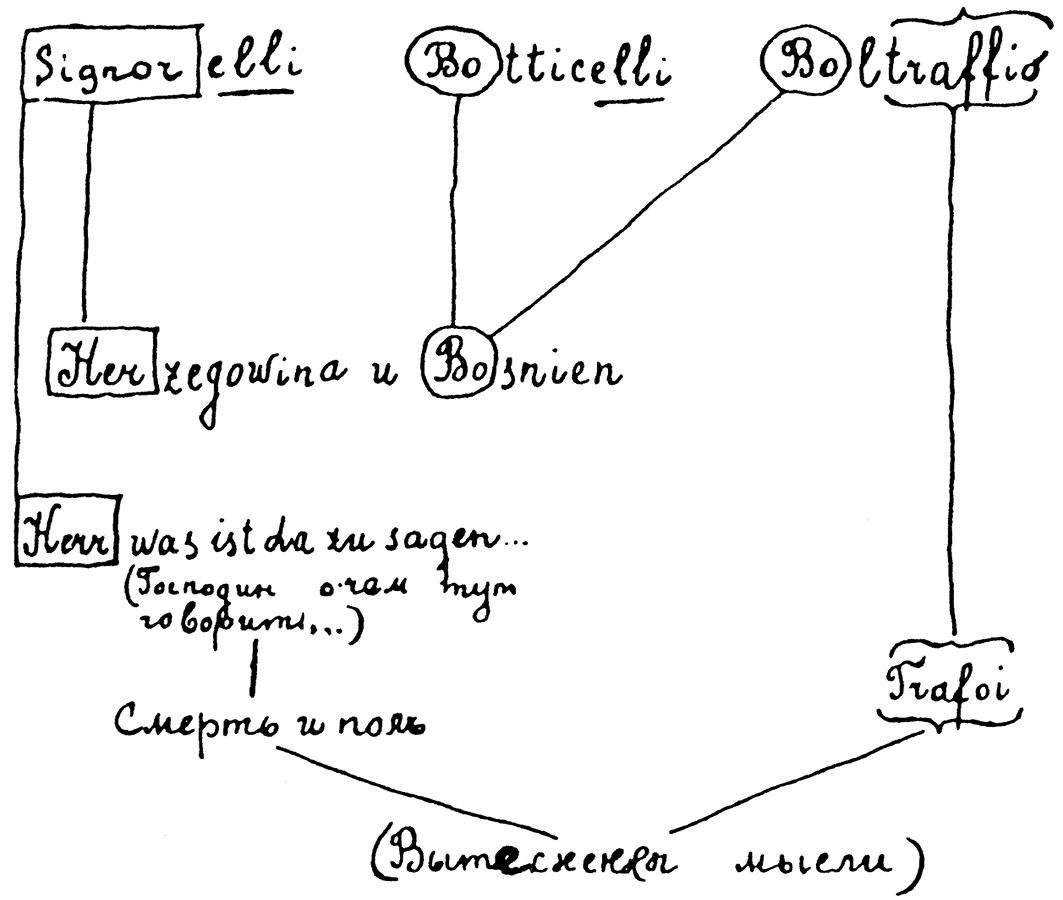 Signorelli Botticelli Boltraffio
Herzegowina и Bosnien
Herr was ist da zu sagen...
(Господин о чем тут
говорить,..)
Trafoi
Смерть и поль
(Вытеснены мысли)